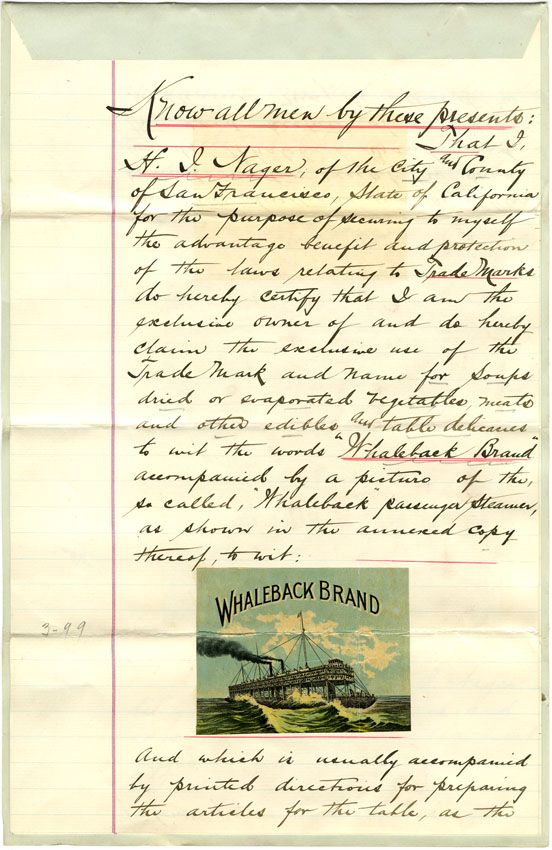 Know all men by these presents:
That I,
H. I. Nager, of the City and County
of San Francisco, State of California
for the purpose of securing to myself
the advantage benefit and protection
of the laws relating to Trade Marks
do hereby certify that I am the
exclusive owner of and do hereby
claim the exclusive use of the
Trade Mark and name for Soups
dried or evaporated vegetables, meats
and other edibles and table delicacies
to wit the words "Whaleback Brand"
accompanied by a picture of the,
so called, "Whaleback" passenger Steamer,
as shown in the annexed copy
thereof, to wit:
WHALEBACK BRAND
3-99
And which is usually accompanied
by printed directions for preparing
the articles for the table, as the